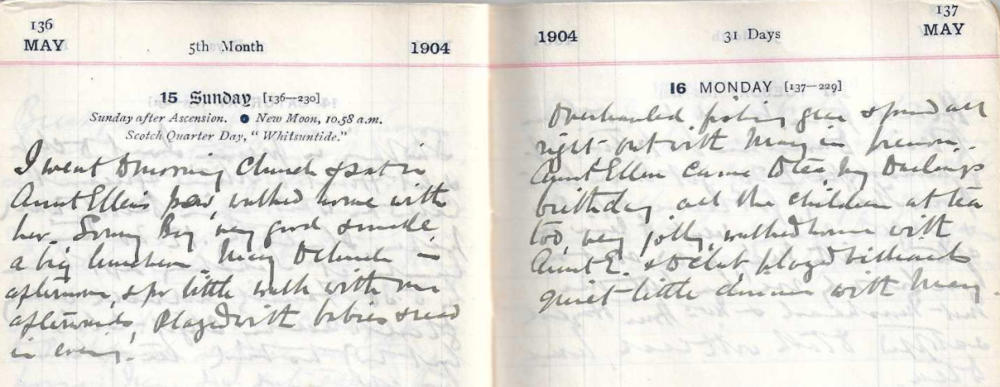 136
MAY
5th Month
1904
15 Sunday [136—230]
Sunday after Ascension. ● New Moon, 10.58 a.m.
Scotch Quarter Day, "Whitsuntide."
I went to morning Church & sat in
Aunt Ellen's pew, walked home with
her. Sonny Boy very good & made
a big luncheon. May to church in
afternoon, & for little walk with me
afterwards, played with babies & read
in evening.
1904
31 Days
137
MAY
16 MONDAY [137—229]
Overhauled fishing gear & found all
right out with May in
Aunt Ellen came to tea my Darlings
birthday all the children at tea
too, very jolly, walked home with
Aunt E. & to club played billiards
quiet little dinner with May